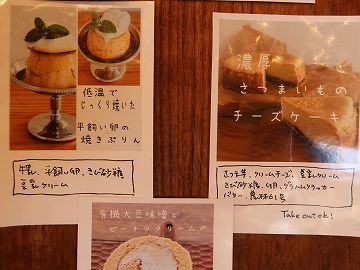 低温で
じっくり焼いた
平飼い卵の
焼きぷりん
牛乳、平飼い卵、きび砂糖
豆乳クリーム
濃厚
さつまいもの
チーズケーキ
さつま芋、クリームチーズ、豆乳クリーム
きび砂糖、卵、グラハムクラッカー
バター、
Take out ok!
有機大豆味噌と
ピーナツクリームの